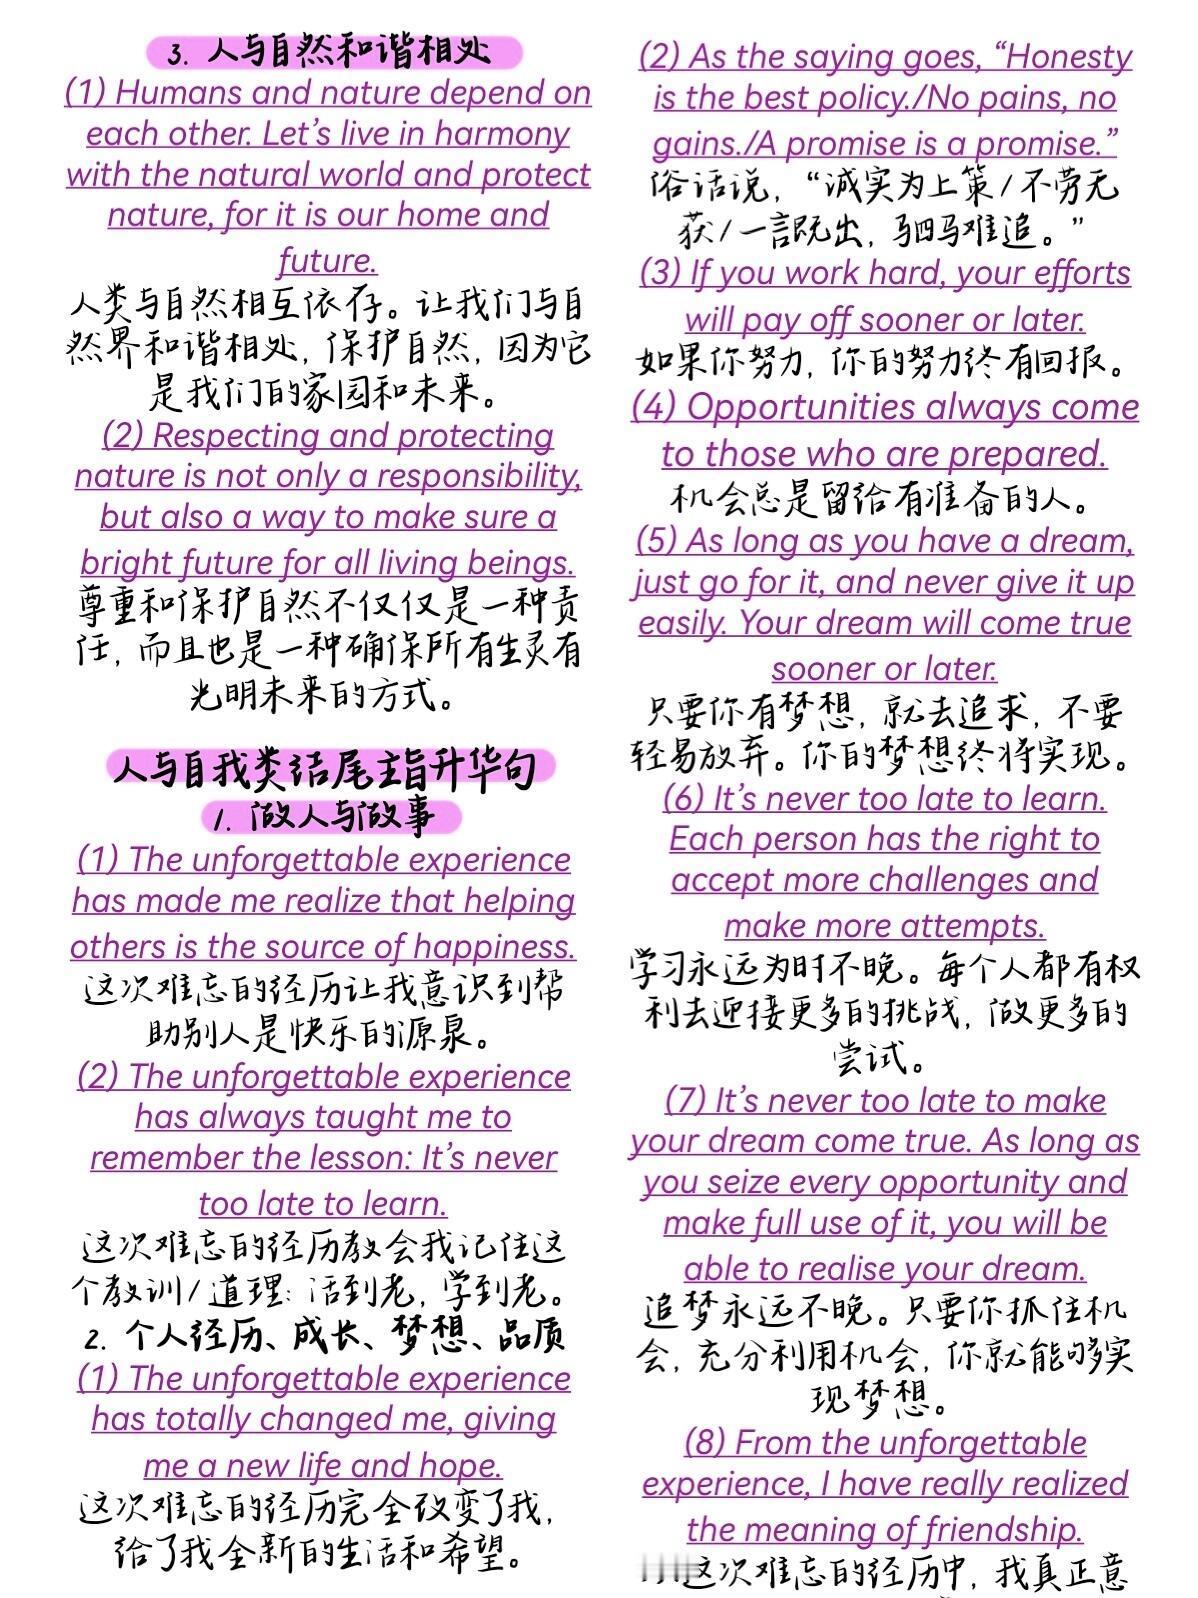 3. 人与自然和谐相处
(1) Humans and nature depend on
each other. Let's live in harmony
with the natural world and protect
nature, for it is our home and
future.
人类与自然相互依存。让我们与自
然界和谐相处, 保护自然, 因为它
是我们的家园和未来。
(2) Respecting and protecting
nature is not only a responsibility,
but also a way to make sure a
bright future for all living beings.
尊重和保护自然不仅仅是一种责
任, 而且也是一种确保所有生灵有
光明未来的方式。
人与自我类结尾主旨升华句
1. 做人与做事
(1) The unforgettable experience
has made me realize that helping
others is the source of happiness.
这次难忘的经历让我意识到帮
助别人是快乐的源泉。
(2) The unforgettable experience
has always taught me to
remember the lesson: It's never
too late to learn.
这次难忘的经历教会我记住这
个教训/道理: 活到老, 学到老。
2. 个人经历、成长、梦想、品质
(1) The unforgettable experience
has totally changed me, giving
me a new life and hope.
这次难忘的经历完全改变了我,
给了我全新的生活和希望。
(2) As the saying goes, “Honesty
is the best policy./No pains, no
gains./A promise is a promise.”
俗话说, “诚实为上策/不劳无
获/一言既出, 驷马难追。”
(3) If you work hard, your efforts
will pay off sooner or later.
如果你努力, 你的努力终有回报。
(4) Opportunities always come
to those who are prepared.
机会总是留给有准备的人。
(5) As long as you have a dream,
just go for it, and never give it up
easily. Your dream will come true
sooner or later.
只要你有梦想, 就去追求, 不要
轻易放弃。你的梦想终将实现。
(6) It's never too late to learn.
Each person has the right to
accept more challenges and
make more attempts.
学习永远为时不晚。每个人都有权
利去迎接更多的挑战, 做更多的
尝试。
(7) It's never too late to make
your dream come true. As long as
you seize every opportunity and
make full use of it, you will be
able to realise your dream.
追梦永远不晚。只要你抓住机
会, 充分利用机会, 你就能够实
现梦想。
(8) From the unforgettable
experience, I have really realized
the meaning of friendship.
这次难忘的经历中, 我真正意